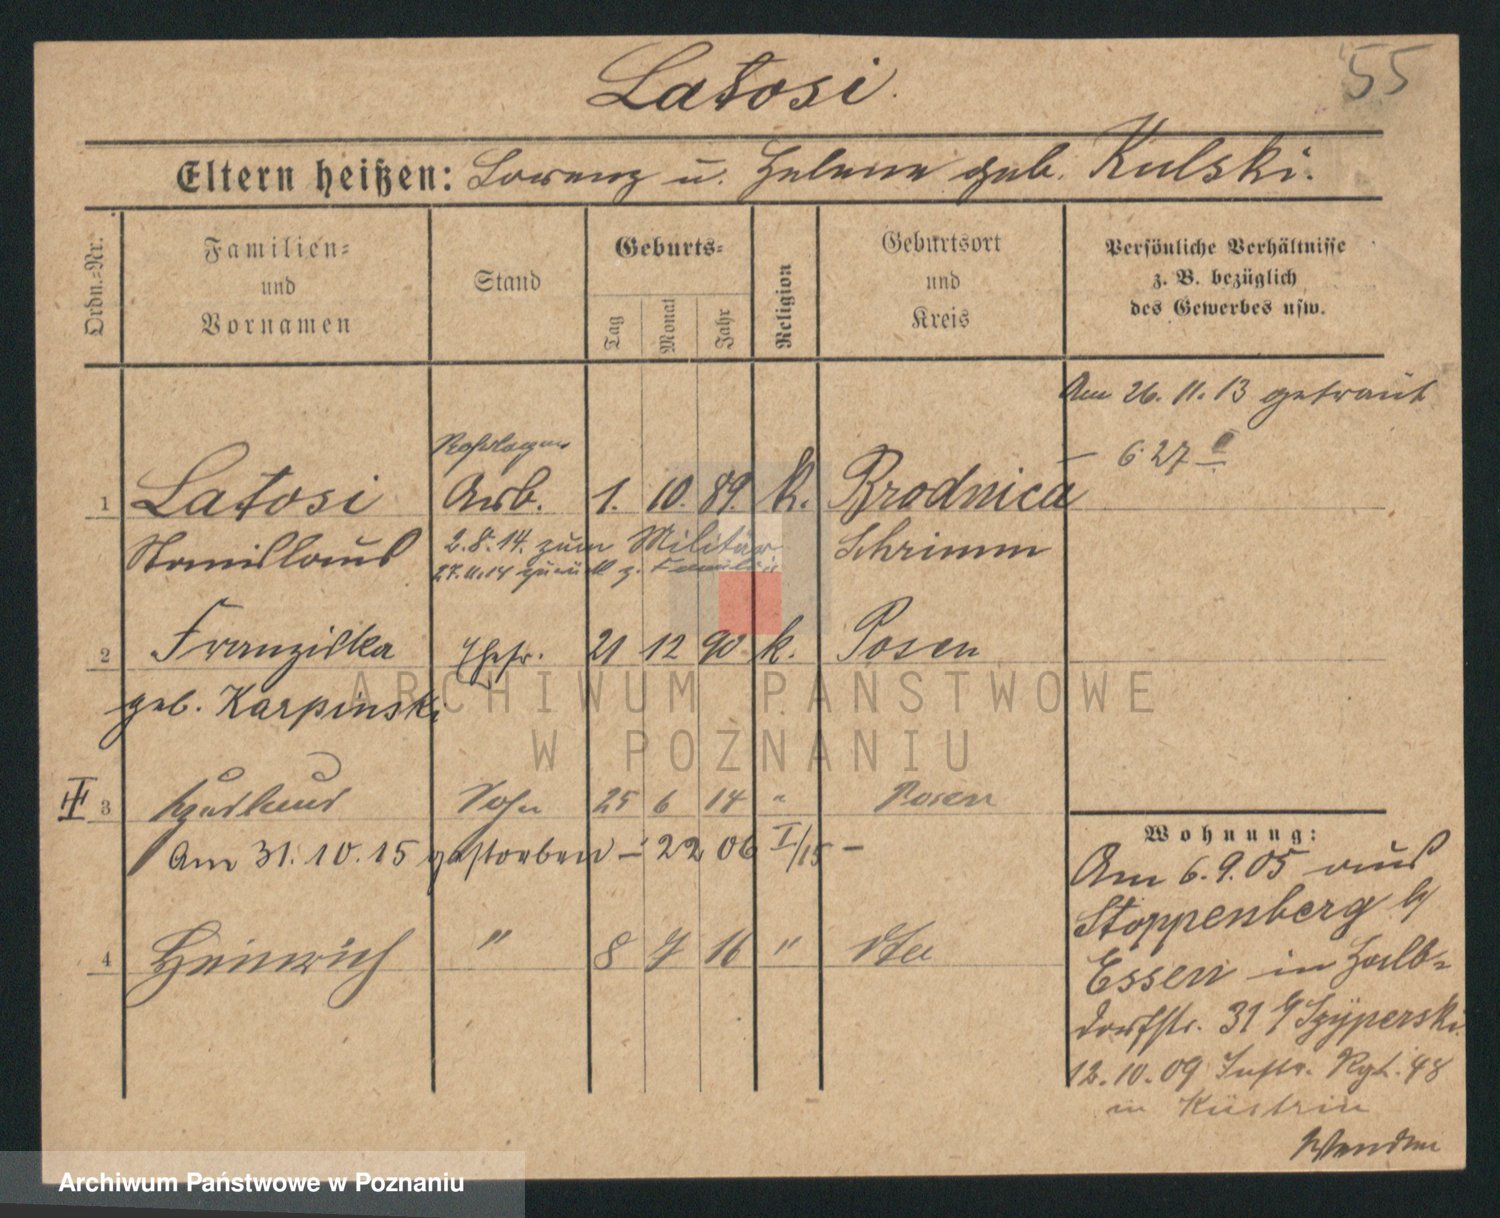 Latosi.
55
Eltern heißen: Lorenz u. Helene geb. Kulski.
Ordn.-Nr.
Familien-
und
Vornamen
Stand
Geburts-
Tag
Monat
Jahr
Religion
Geburtsort
und
Kreis
Persönliche Verhältnisse
z. B. bezüglich
des Gewerbes usw.
Am 26. 11. 13 getraut
– 627
1 Latosi Arb. 1. 10. 89. k. Brodnica
Stanislaus 2.8.14. zum Militär Schrimm
27.11.14 zurück z. Familie
2 Franziska Ehefr. 21 12 90 k. Posen
geb. Karpinski
III 3 Sohn 25 6 14 " Posen
Am 31. 10. 15 gestorben – 22 06 I/15 –
4 Heinrich " 8 7 16 "
Wohnung:
Am 6. 9. 05 aus
Stoppenberg b/
Essen in Halb-
dorfstr. 31 b/ Szyperski.
12. 10. 09 Inftr. Rgt. 48
in Küstrin
Wenden
ARCHIWUM PAŃSTWOWE
W POZNANIU
Archiwum Państwowe w Poznaniu